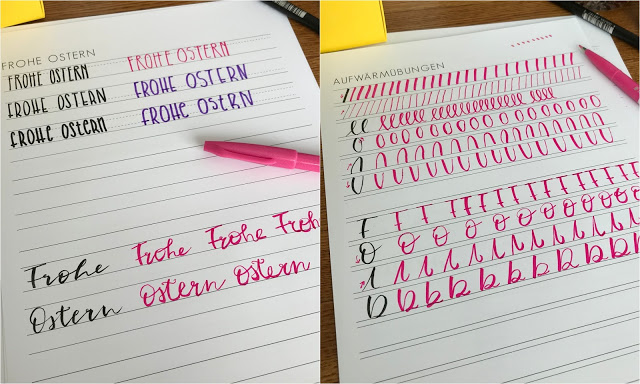 FROHE OSTERN
FROHE OSTERN FROHE OSTERN
FROHE OSTERN FROHE OSTERN
FROHE OSTERN FROHE OSTRN
Frohe Frohe Frohe Froh
Ostern Ostern Ostern
AUFWÄRMÜBUNGEN